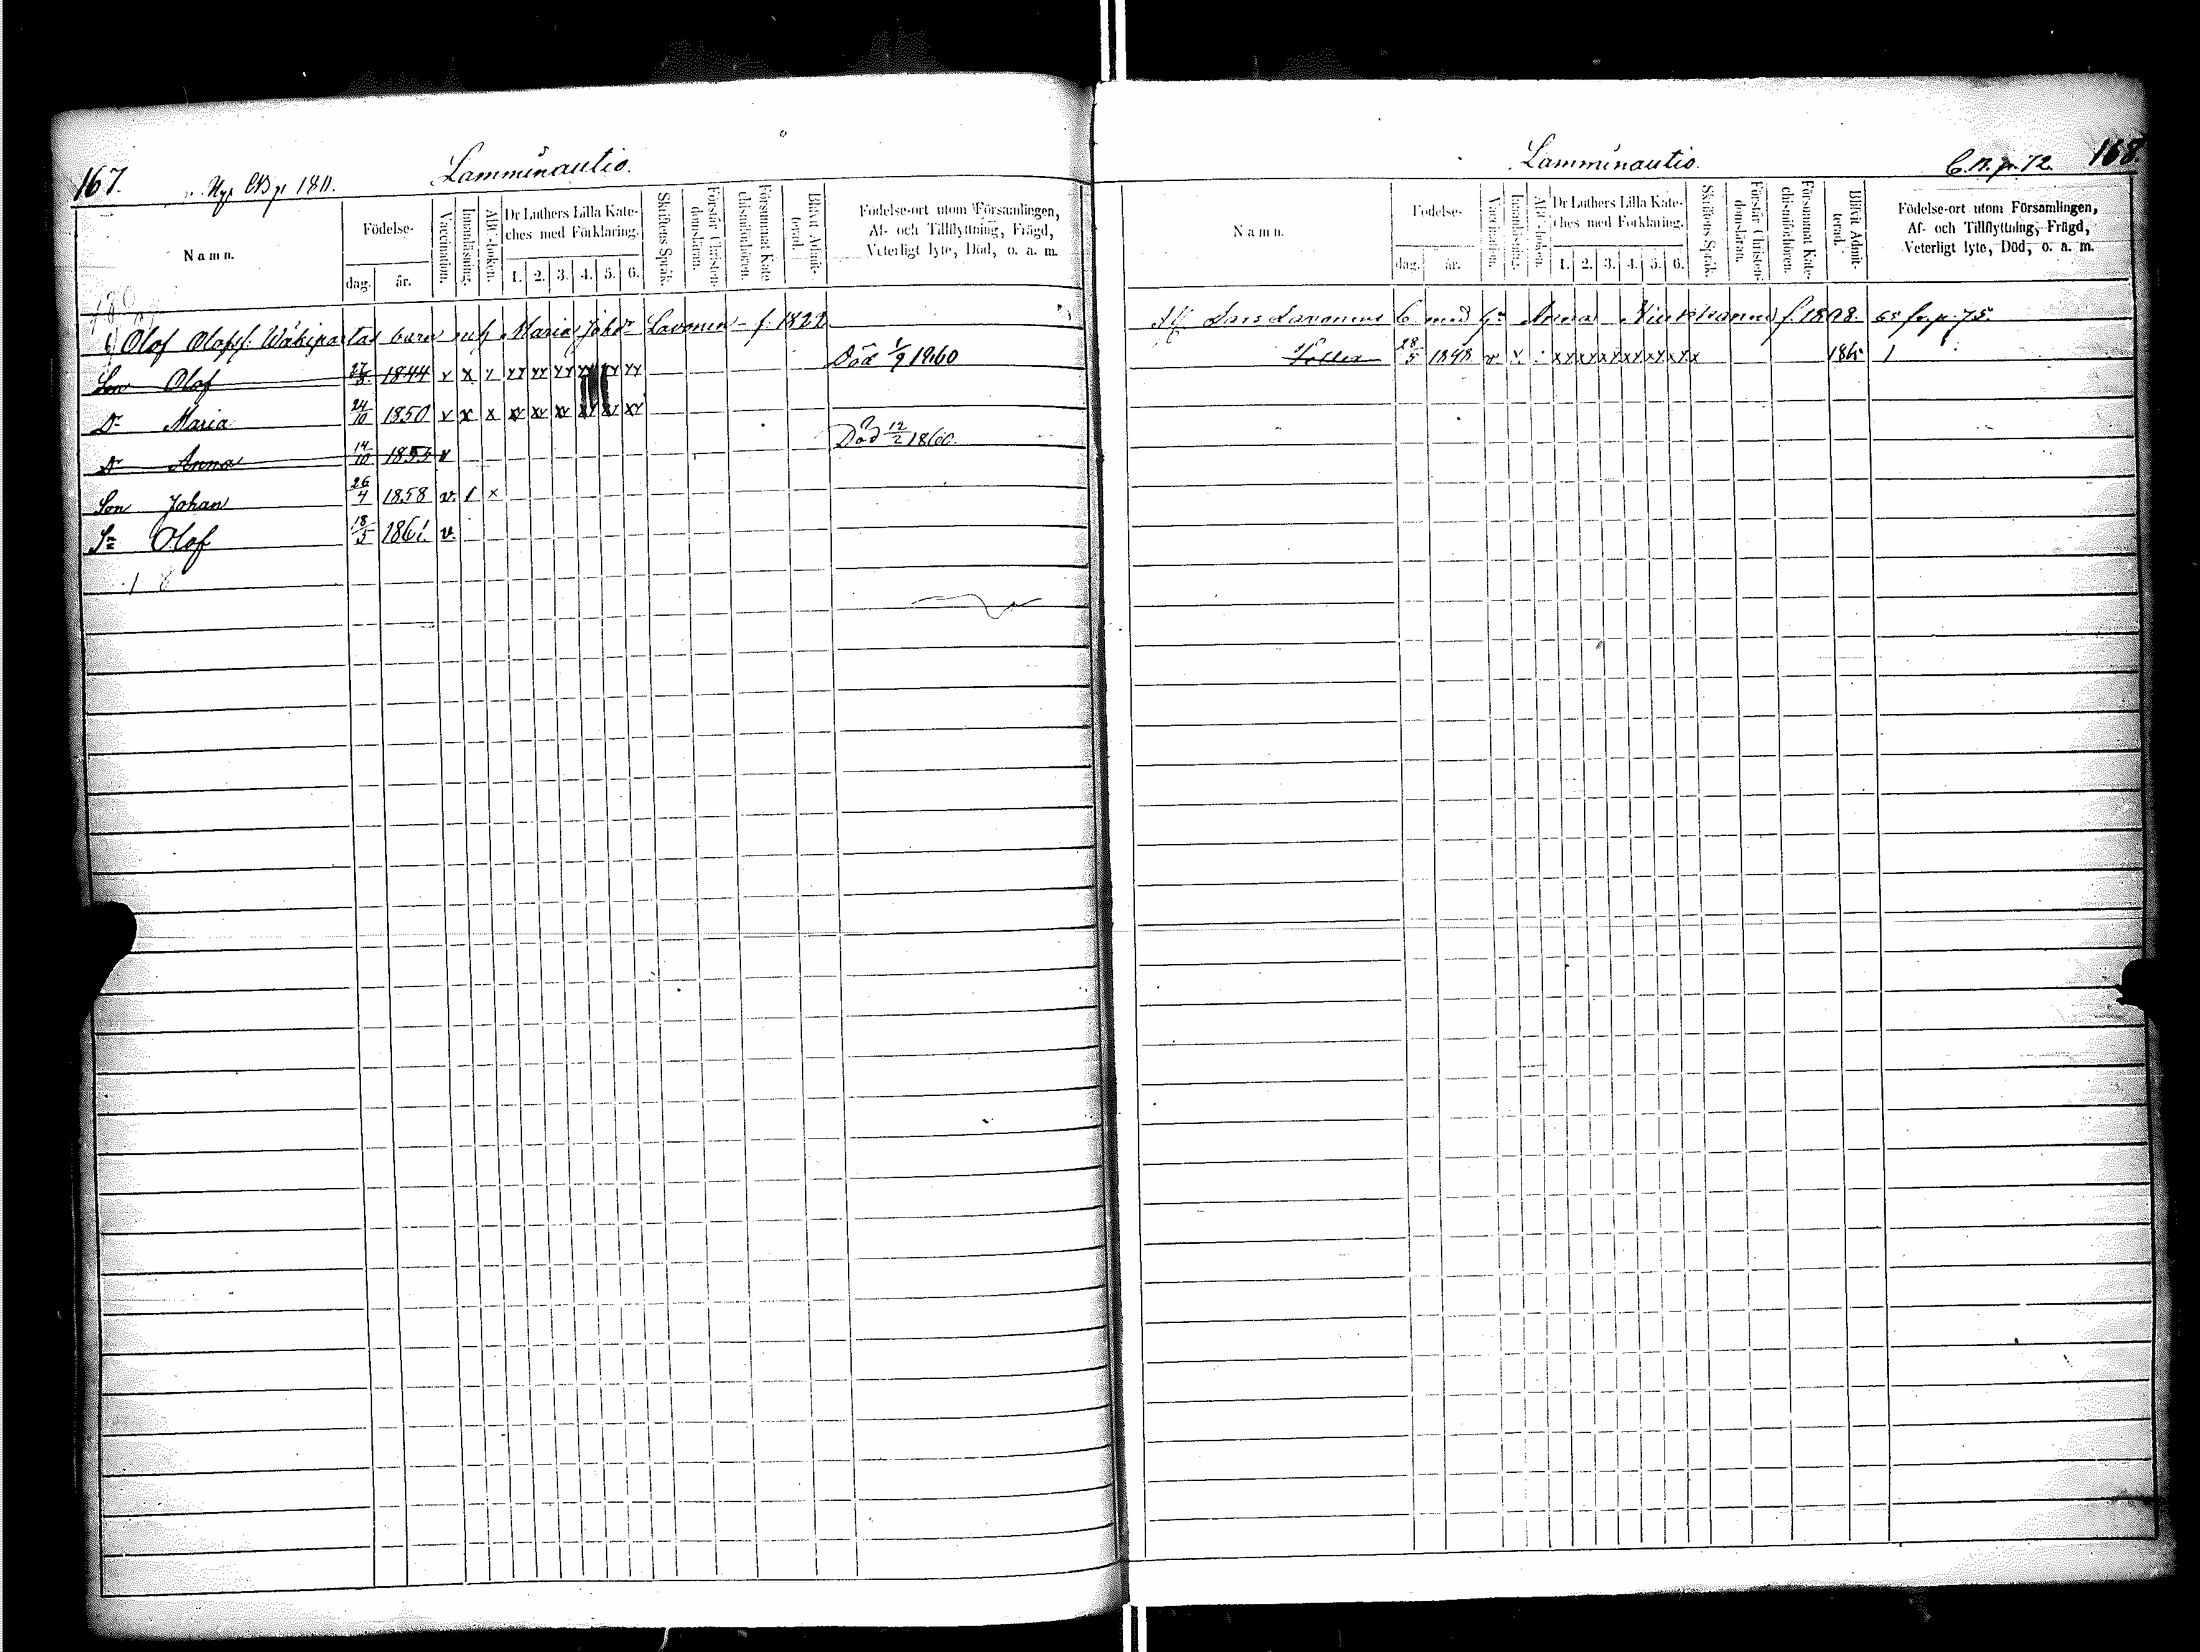 167.
Nya CB p 180.
Lamminautio.
Namn.
Födelse-
dag.
år.
Vaccination.
Innanläsning.
ABC-boken.
Dr Luthers Lilla Kate-
ches med Förklaring.
1. 2. 3. 4. 5. 6.
Skriftens Språk.
Förstår Christen-
domsläran.
Försummat Kate-
chismiförhören.
Blifvit Admit-
terad.
Födelse-ort utom Församlingen,
Af- och Tillflyttning, Frägd,
Veterligt lyte, Död, o. a. m.
Olof Olofss. Wäkipartas barn m. h. Maria Johsdr Lavonen - f. 1822
Son Olof 27/8 1844 v x x xx xx xx xx xx xx Död 1/9 1860
Dr Maria 24/10 1850 v x x xx xx xx xx xx xx
Dr Anna 14/10 1855 v Död 12/2 1860.
Son Johan 26/4 1858 v. 1 x
Sn Olof 18/5 1861. v.
Lamminautio.
C.B. p. 72.
168.
Namn.
Födelse-
dag.
år.
Vaccination.
Innanläsning.
ABC-boken.
Dr Luthers Lilla Kate-
ches med Förklaring.
1. 2. 3. 4. 5. 6.
Skriftens Språk.
Förstår Christen-
domsläran.
Försummat Kate-
chismiförhören.
Blifvit Admit-
terad.
Födelse-ort utom Församlingen,
Af- och Tillflyttning, Frägd,
Veterligt lyte, Död, o. a. m.
Lars Lavonens b med Anna f. 1808. p. 75.
28/5 1848 v x xx xx xx xx xx xx x 1865 1